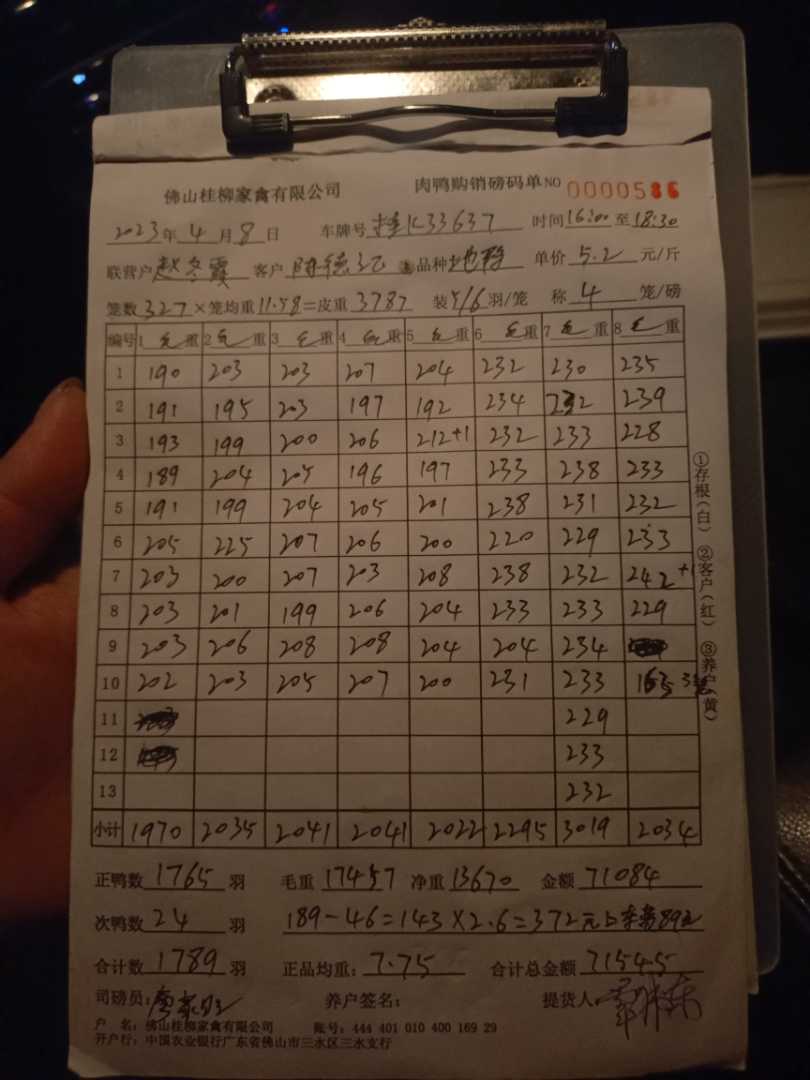 佛山桂柳家禽有限公司 肉鸭购销磅码单 NO 0000586
2023年4月8日 车牌号 桂K33637 时间16:00至18:30
联营户 赵冬霞 客户 品种 地鸭 单价 5.2 元/斤
笼数 327 × 笼均重 11.58 = 皮重 3787 装5/6羽/笼 称 4 笼/磅
编号 1 毛重 2 毛重 3 毛重 4 毛重 5 毛重 6 毛重 7 毛重 8 毛重
1 190 203 203 207 204 232 230 235
2 191 195 203 197 192 234 232 239
3 193 199 200 206 212+1 232 233 228
4 189 204 205 196 197 233 238 233
5 191 199 204 205 201 238 231 232
6 205 225 207 206 200 220 229 233
7 203 200 207 203 208 238 232 242+1
8 203 201 199 206 204 233 233 229
9 203 206 208 208 204 204 234
10 202 203 205 207 200 231 233 163 3笼
11 229
12 233
13 232
小计 1970 2035 2041 2041 2022 2295 3019 2034
①存根(白) ②客户(红) ③养户(黄)
正鸭数 1765 羽 毛重 17457 净重 13670 金额 71084
次鸭数 24 羽 189-46=143×2.6=372元
合计数 1789 羽 正品均重: 7.75 合计总金额 71545
司磅员: 养户签名: 提货人:
户 名: 佛山桂柳家禽有限公司 账号: 444 401 010 400 169 29
开户行: 中国农业银行广东省佛山市三水区三水支行